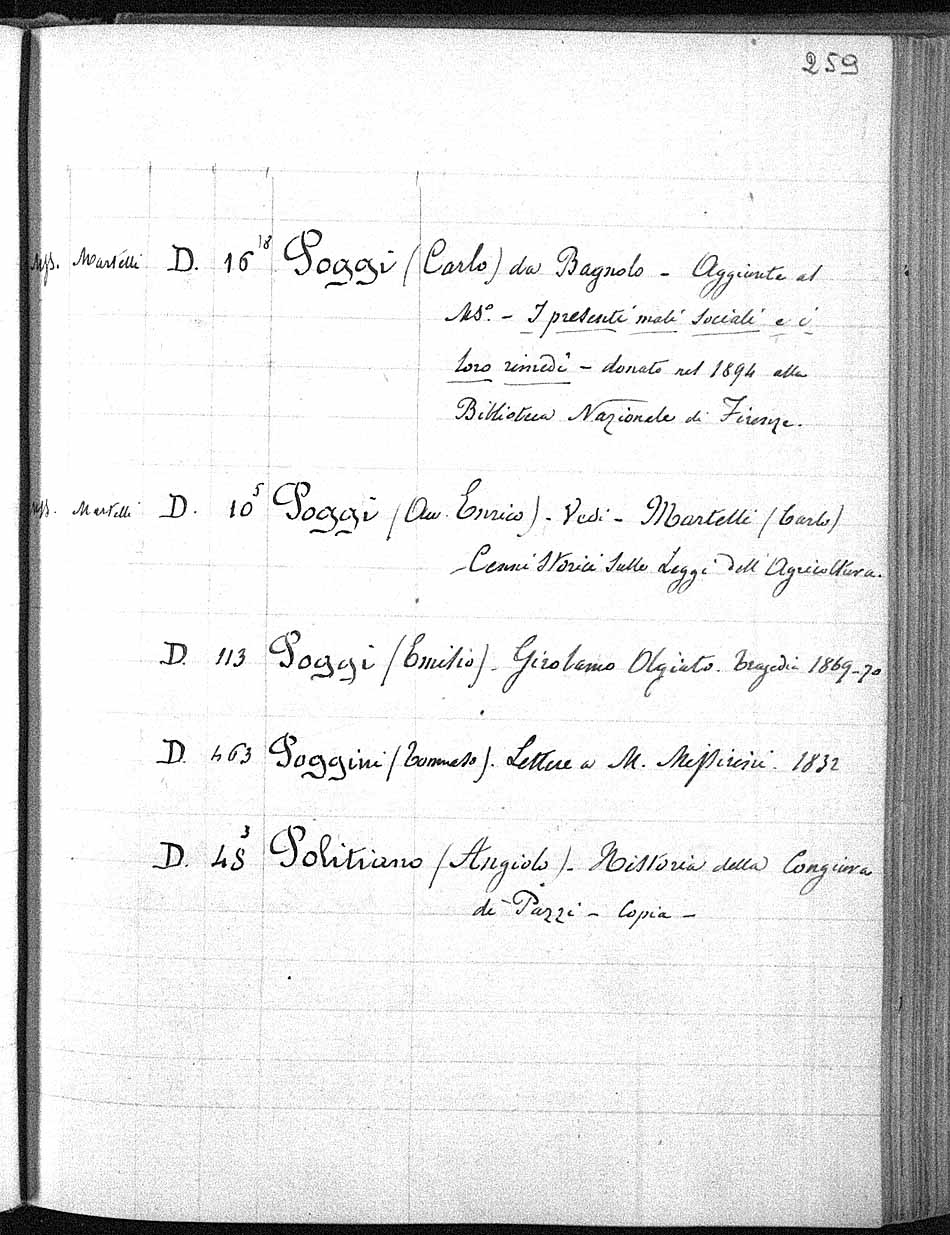 259
Mss. Martelli D. 16¹⁸ Poggi (Carlo) da Bagnolo - Aggiunte al
Ms°. - I presenti mali sociali e i
loro rimedi - donato nel 1894 alla
Biblioteca Nazionale di Firenze.
Mss. Martelli D. 10⁵ Poggi (Avv. Enrico) - Vedi - Martelli (Carlo)
- Cenni Storici sulle Leggi dell'Agricoltura.
D. 113 Poggi (Emilio) - Girolamo Olgiato. Tragedia 1869-70
D. 463 Poggini (Tommaso). Lettere a M. Missirini. 1832
D. 48³ Politiano (Angiolo) - Historia della Congiura
de' Pazzi - Copia -